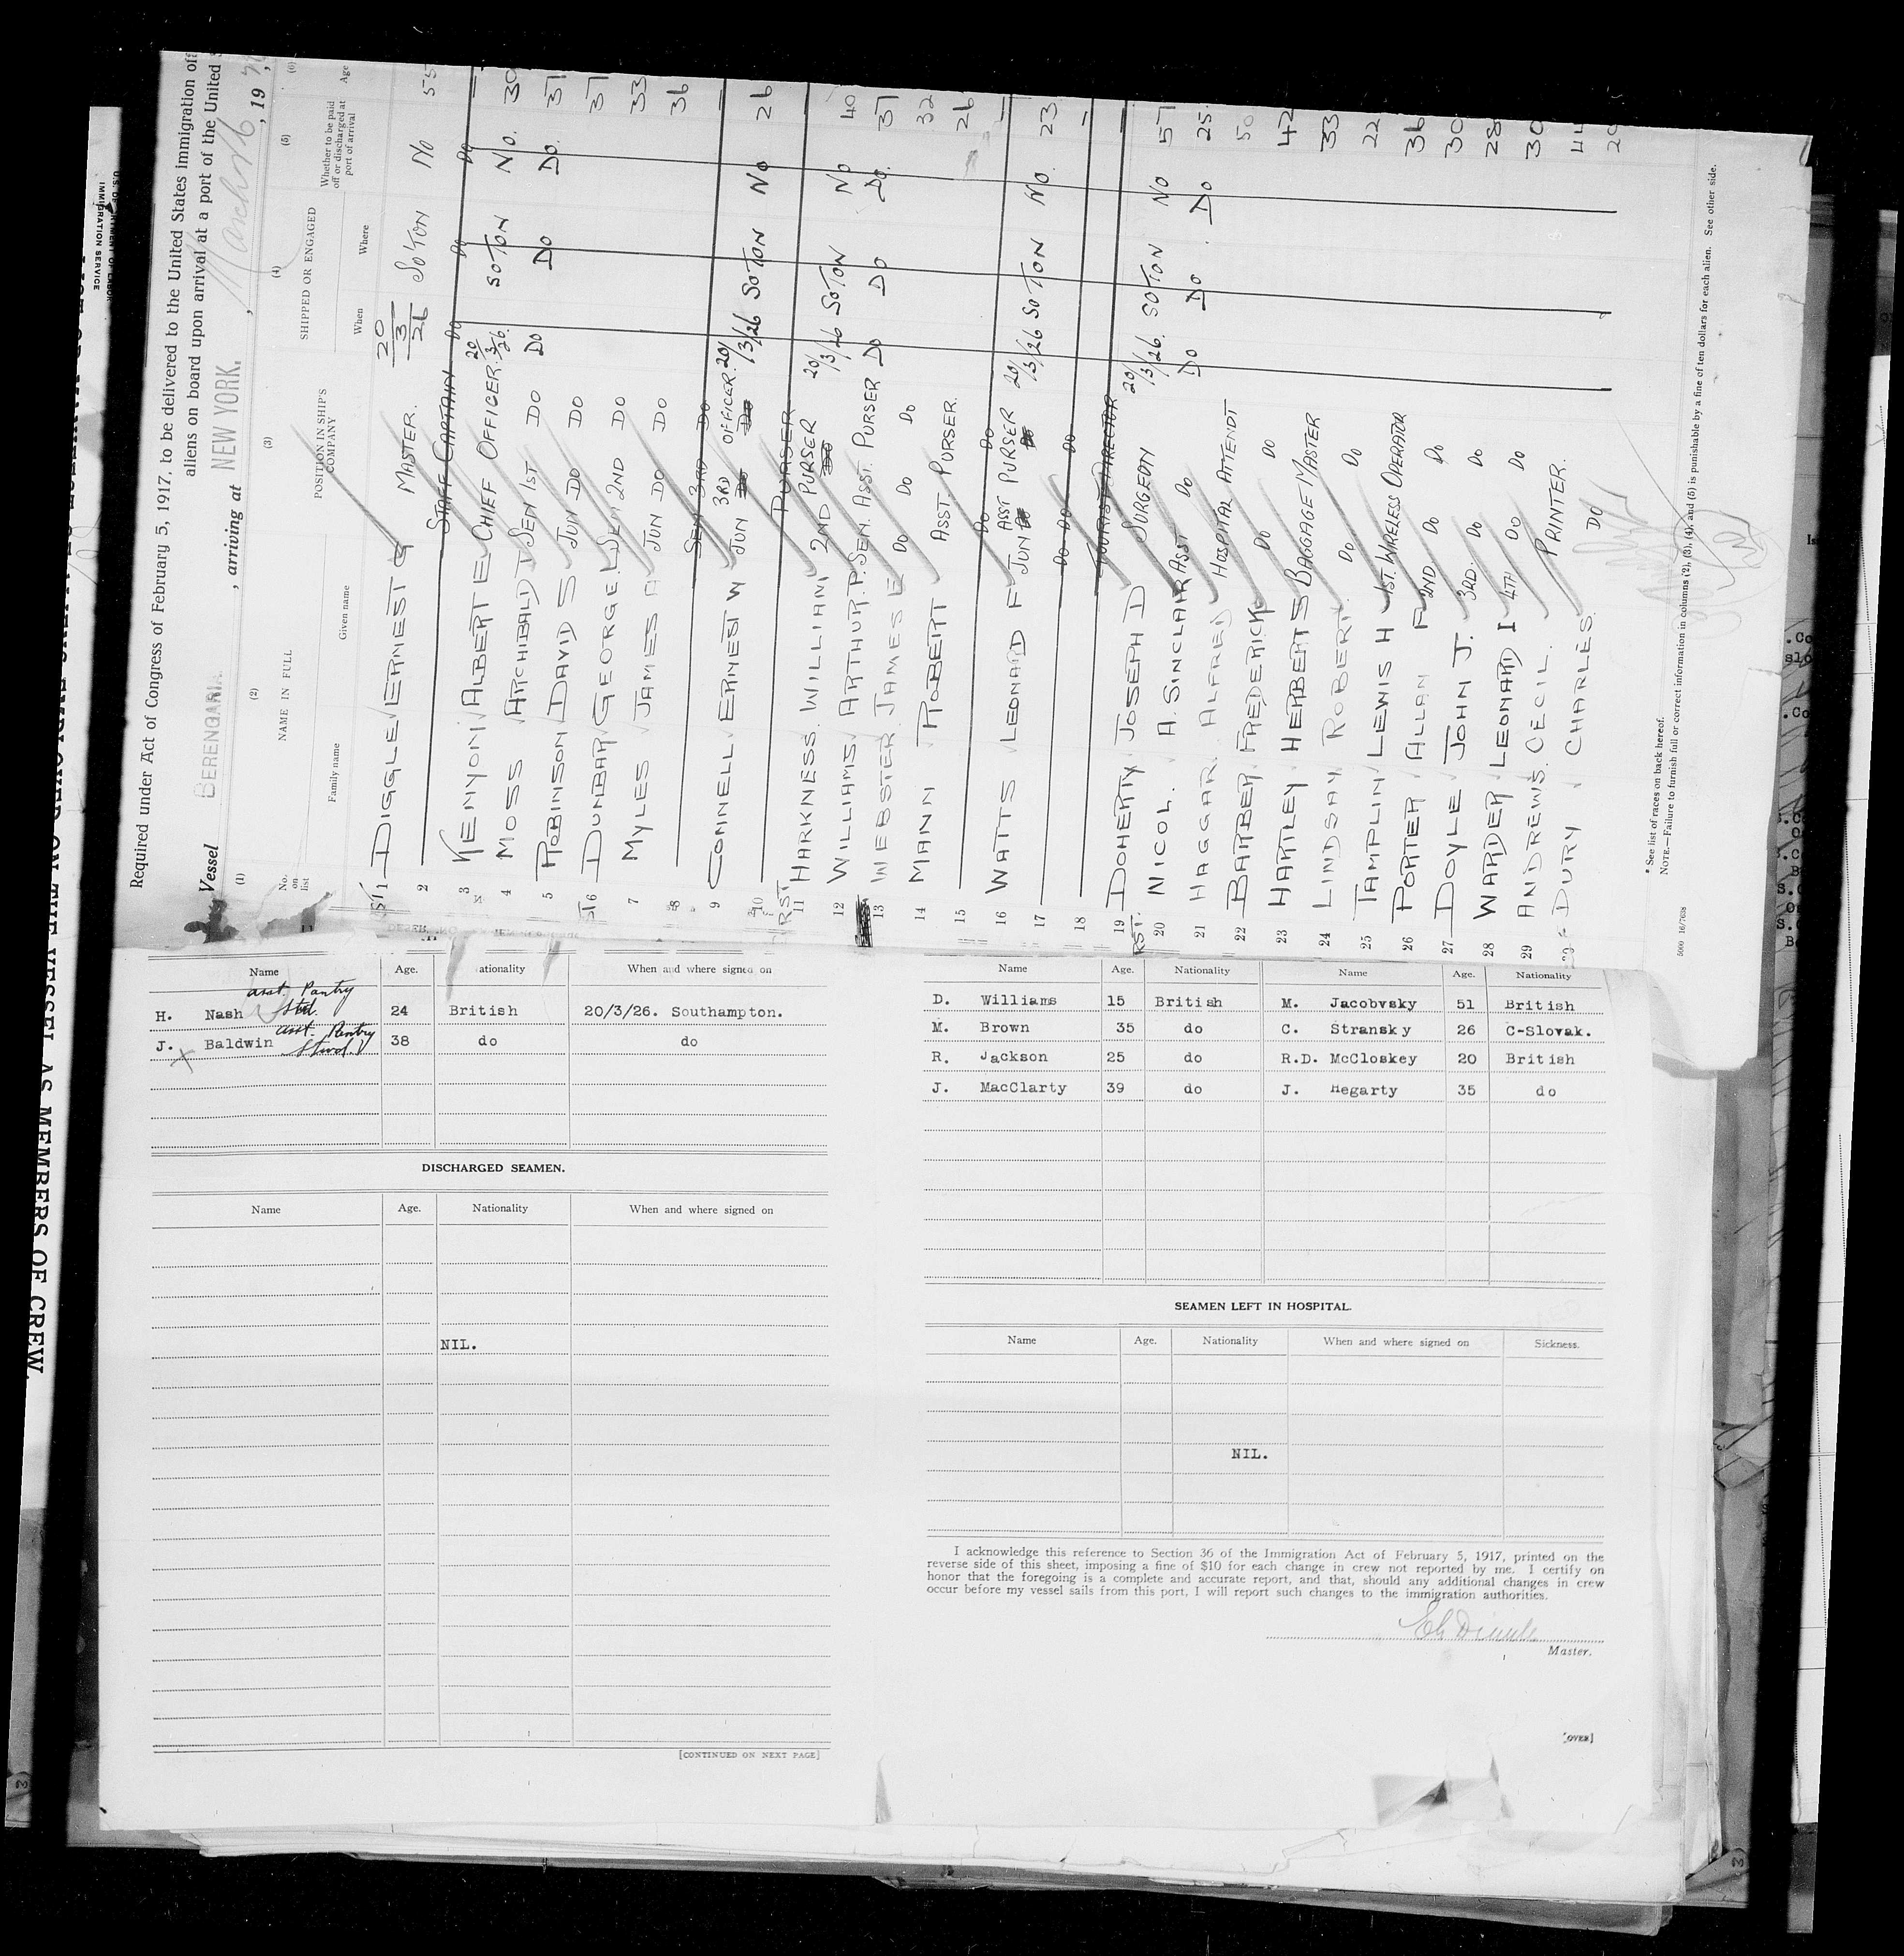 Required under Act of Congress of February 5, 1917, to be delivered to the United States immigration
aliens on board upon arrival at a port of the United
Vessel BERENGARIA , arriving at NEW YORK. , 19
(1) (2) (3) (4) (5) (6)
No. on list NAME IN FULL POSITION IN SHIP'S COMPANY SHIPPED OR ENGAGED Whether to be paid off or discharged at port of arrival Age
Family name Given name When Where
1 DIGGLE ERNEST G MASTER. 20/3/26 SOTON NO 55
2 STAFF CAPTAIN DO DO DO —
3 KENYON ALBERT E CHIEF OFFICER. 20/3/26. SOTON NO. 30
4 MOSS ARCHIBALD J SEN 1ST DO DO DO DO. 37
5 ROBINSON DAVID S JUN DO DO 37
6 DUNBAR GEORGE. SEN 2ND DO 33
7 MYLES JAMES A JUN DO DO 36
8 SEN 3RD DO —
9 CONNELL ERNEST W JUN 3RD OFFICER. 20/3/26 SOTON NO 26
10 PURSER —
11 HARKNESS. WILLIAM 2ND PURSER 20/3/26 SOTON NO 40
12 WILLIAMS ARTHUR. P. SEN. ASST. PURSER DO DO DO. 37
13 WEBSTER JAMES E DO DO DO 32
14 MANN ROBERT ASST. PURSER. 26
15 DO DO —
16 WATTS LEONARD F JUN ASST PURSER 20/3/26 SOTON NO. 23
17 DO DO DO —
18 TOURIST DIRECTOR
19 DOHERTY JOSEPH D SURGEON 20/3/26. SOTON NO 57
20 NICOL. A. SINCLAIR ASST DO DO DO DO 25.
21 HAGGAR. ALFRED HOSPITAL ATTENDT 50
22 BARBER FREDERICK DO DO 42
23 HARTLEY HERBERT S BAGGAGE MASTER 33
24 LINDSAY ROBERT. DO DO 22
25 TAMPLIN LEWIS H 1ST. WIRELESS OPERATOR 36
26 PORTER ALLAN F 2ND DO DO 30
27 DOYLE JOHN J. 3RD. DO DO 28
28 WARDER LEONARD I 4TH DO DO 30
29 ANDREWS. CECIL. PRINTER. 44
DURY CHARLES. DO
* See list of races on back hereof.
NOTE.—Failure to furnish full or correct information in columns (2), (3), (4), and (5) is punishable by a fine of ten dollars for each alien. See other side.
5000 16/7638
Name Age. Nationality When and where signed on
H. Nash asst. Pantry Std. 24 British 20/3/26. Southampton.
J. Baldwin asst. Pantry Stwd. 38 do do
DISCHARGED SEAMEN.
Name Age. Nationality When and where signed on
NIL.
[CONTINUED ON NEXT PAGE]
Name Age. Nationality Name Age. Nationality
D. Williams 15 British M. Jacobvsky 51 British
M. Brown 35 do C. Stransky 26 C-Slovak.
R. Jackson 25 do R.D. McCloskey 20 British
J. MacClarty 39 do J. Hegarty 35 do
SEAMEN LEFT IN HOSPITAL.
Name Age. Nationality When and where signed on Sickness.
NIL.
I acknowledge this reference to Section 36 of the Immigration Act of February 5, 1917, printed on the
reverse side of this sheet, imposing a fine of $10 for each change in crew not reported by me. I certify on
honor that the foregoing is a complete and accurate report, and that, should any additional changes in crew
occur before my vessel sails from this port, I will report such changes to the immigration authorities.
Master.
[OVER]
IMMIGRATION SERVICE
EMPLOYED ON THE VESSEL AS MEMBERS OF CREW